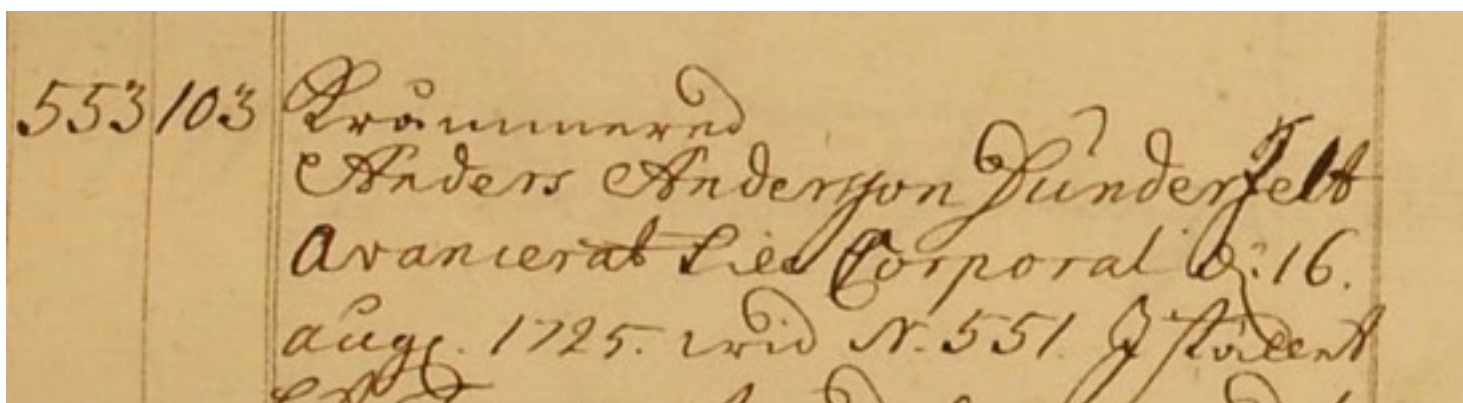 553 103 Krämmered
Anders Andersson Dunderfelt
Avancerat till Corporal d: 16.
aug. 1725. wid N. 551. I stället